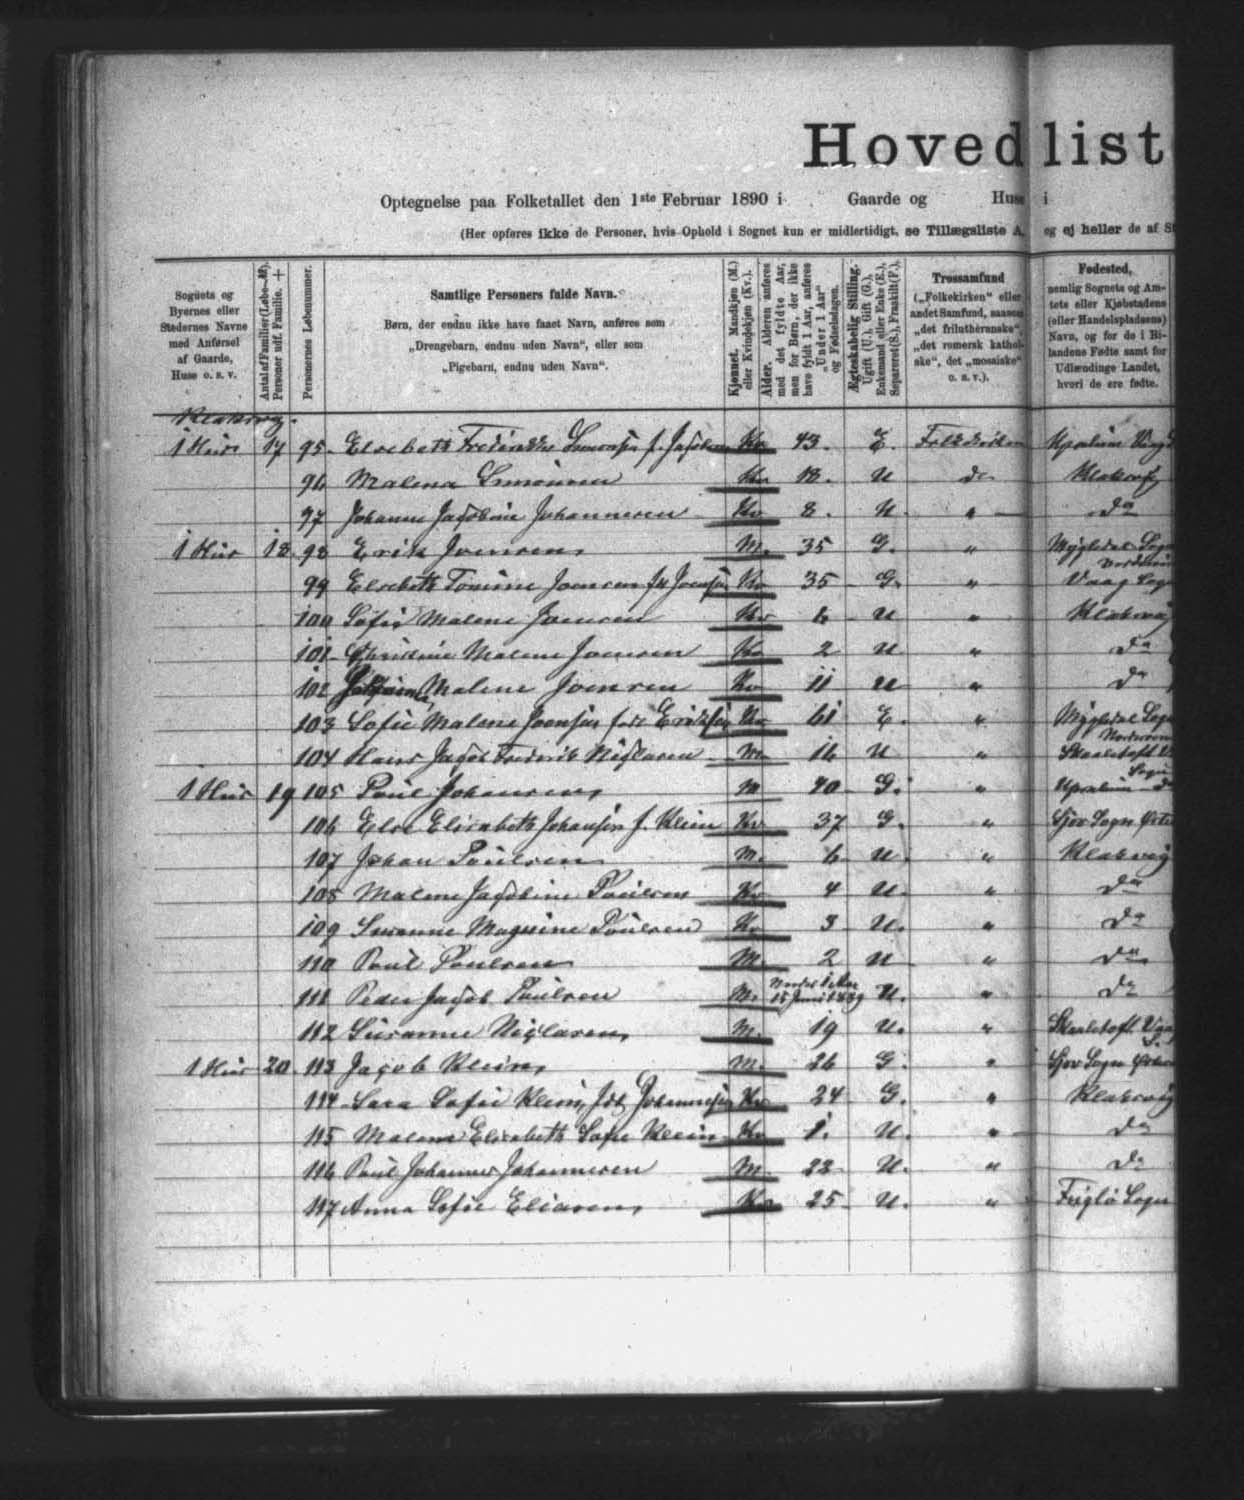 Hovedlist
Optegnelse paa Folketallet den 1ste Februar 1890 i Gaarde og Huse i
(Her opføres ikke de Personer, hvis Ophold i Sognet kun er midlertidigt, se Tillægsliste A, og ej heller de af S
Sognets og Byernes eller Stedernes Navne med Anførsel af Gaarde, Huse o. s. v.
Antal af Familier (Løbe-№). Personer udf. Familie. +
Personernes Løbenummer.
Samtlige Personers fulde Navn.
Børn, der endnu ikke have faaet Navn, anføres som
„Drengebarn, endnu uden Navn“, eller som
„Pigebarn, endnu uden Navn“.
Kjønnet. Mandkjøn (M.) eller Kvindekjøn (Kv.).
Alder. Alderen anføres med det fyldte Aar, men for Børn, der ikke have fyldt 1 Aar, anføres „Under 1 Aar“ og Fødselsdagen.
Ægteskabelig Stilling. Ugift (U.), Gift (G.), Enkemand eller Enke (E.), Separeret (S.), Fraskilt (F.).
Trossamfund („Folkekirken“ eller andet Samfund, saasom „det frilutheranske“, „det romersk katholske“, det „mosaiske“ o. s. v.).
Fødested, nemlig Sognets og Amtets eller Kjøbstadens (eller Handelspladsens) Navn, og for de i Bilandene Fødte samt for Udlændinge Landet, hvori de ere fødte.
Klaksvig.
1 Hus 17 95 Elsebeth Frederikke Simonsen f. Jacobsen Kv 43. E. Folkekirken
96 Malena Simonsen Kv 18. U do Klaksvig
97 Johanne Jacobine Johannesen Kv 8. U. " do
1 Hus 18 98 Erik Joensen M. 35 G. " Mygledal Sogn
99 Elsebeth Tomine Joensen Kv 35 G. " Vaag Sogn
100 Sofie Malene Joensen Kv 6 U " Klaksvig
101 Christine Malene Joensen Kv 2 U " do
102 Malene Joensen Kv 11 U " do
103 Sofie Malene Joensen født Eriksen Kv 61 E. " Mygledal Sogn
104 Hans Jacob Frederik Niclasen M. 16 U " Skaaletoft
1 Hus 19 105 Poul Johansen M 40 G. "
106 Else Elisabeth Johansen f. Klein Kv 37 G. " Sjov Sogn Øster
107 Johan Poulsen M. 6 U. " Klaksvig
108 Malene Jacobine Poulsen Kv 4 U. " do
109 Susanne Magrine Poulsen Kv 3 U. " do
110 Poul Poulsen M. 2 U " do
111 Peder Jacob Poulsen M. 15 Juni 1889 U. " do
112 Susanne Niclasen M. 19 U. " Skaaletoft
1 Hus 20 113 Jacob Klein M. 26 G. " Sjov Sogn
114 Sara Sofie Klein, født Johannesen Kv 24 G. " Klaksvig
115 Malene Elisabeth Sofie Klein Kv 1. U. " do
116 Poul Johannes Johannesen M. 22 U. " do
117 Anna Sofie Eliasen Kv 25 U. " Fuglø Sogn